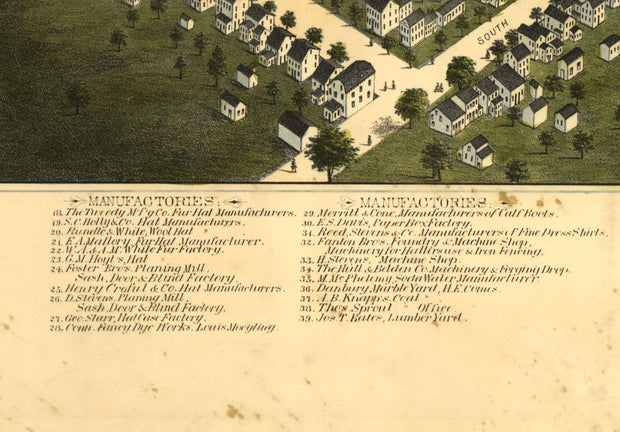 SOUTH
MANUFACTORIES:
18. The Tweedy M'f'g Co. Fur Hat Manufacturers.
19. S.C. Holly & Co. Hat Manufacturers.
20. Rundle & White, Wool Hat "
21. E.A. Mallory, Fur Hat Manufacturer.
22. W.A. & A.M. White, Fur Factory.
23. G.M. Hoyt's, Hat
24. Foster Bros. Planing Mill,
Sash, Door & Blind Factory.
25. Henry Crofut & Co. Hat Manufacturers.
26. D. Stevens, Planing Mill,
Sash, Door & Blind Factory.
27. Geo. Starr, Hat Case Factory.
28. Conn. Fancy Dye Works, Louis Moegling.
MANUFACTORIES:
29. Merritt & Cone, Manufacturers of Calf Boots.
30. E.S. Davis, Paper Box Factory.
31. Reed, Stevens & Co. Manufacturers of Fine Dress Shirts.
32. Fanton Bro's. Foundry & Machine Shop,
Machinery for Hatters use & Iron Fencing.
33. H. Stevens, " Machine Shop.
34. The Hull & Belden Co. Machinery & Forging Drop.
35. M. McPhelemy, Soda Water Manufacturer.
36. Danbury Marble Yard, H.E. Comes.
37. A.B. Knapp's, Coal "
38. Tho's Sproul " Office
39. Jos T. Bates, Lumber Yard.